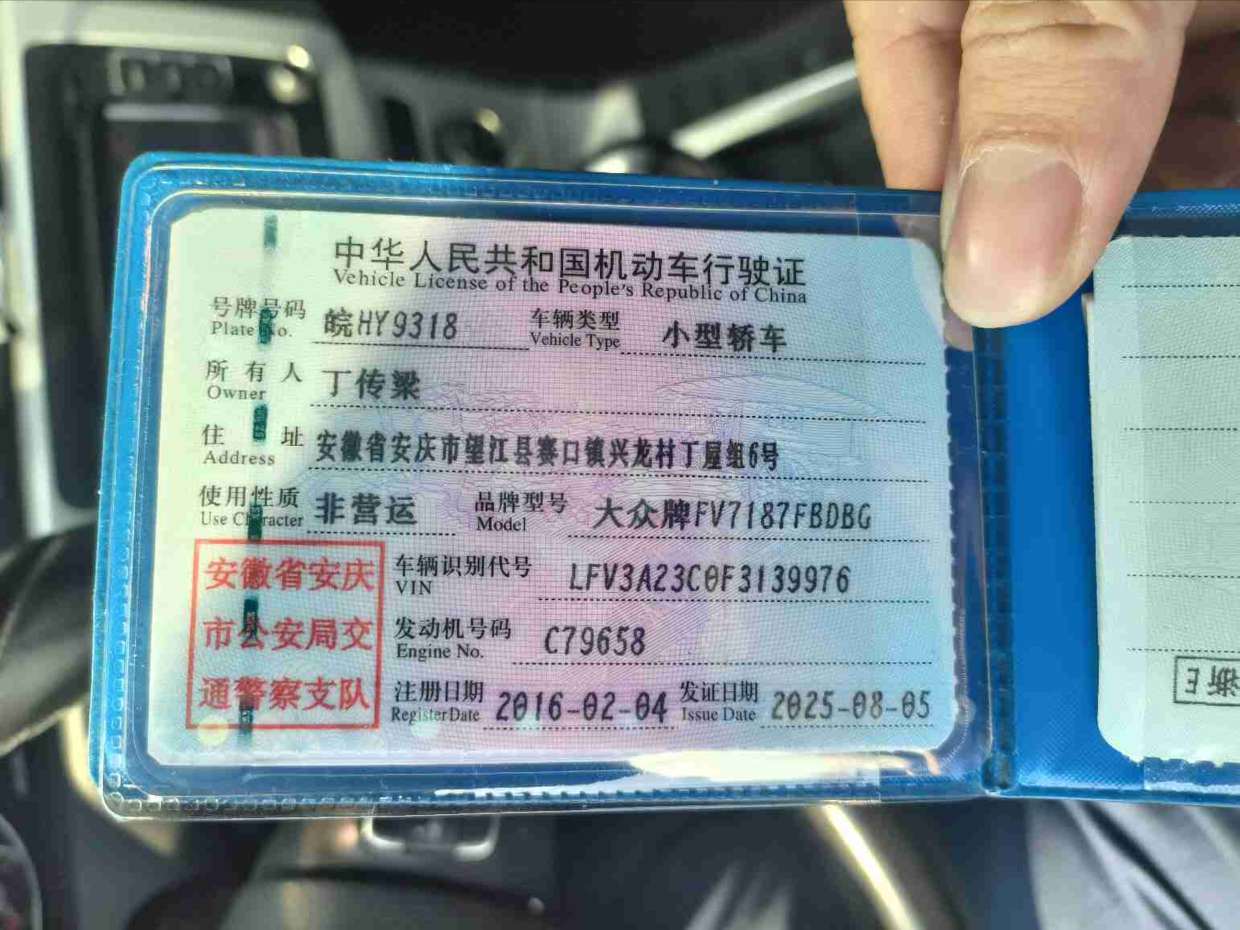 中华人民共和国机动车行驶证
Vehicle License of the People's Republic of China
号牌号码 皖HY9318 车辆类型 小型轿车
Plate No. Vehicle Type
所有人 丁传梁
Owner
住址 安徽省安庆市望江县赛口镇兴龙村丁屋组6号
Address
使用性质 非营运 品牌型号 大众牌FV7187FBDBG
Use Character Model
安徽省安庆
市公安局交
通警察支队
车辆识别代号 LFV3A23C0F3139976
VIN
发动机号码 C79658
Engine No.
注册日期 2016-02-04 发证日期 2025-08-05
Register Date Issue Date